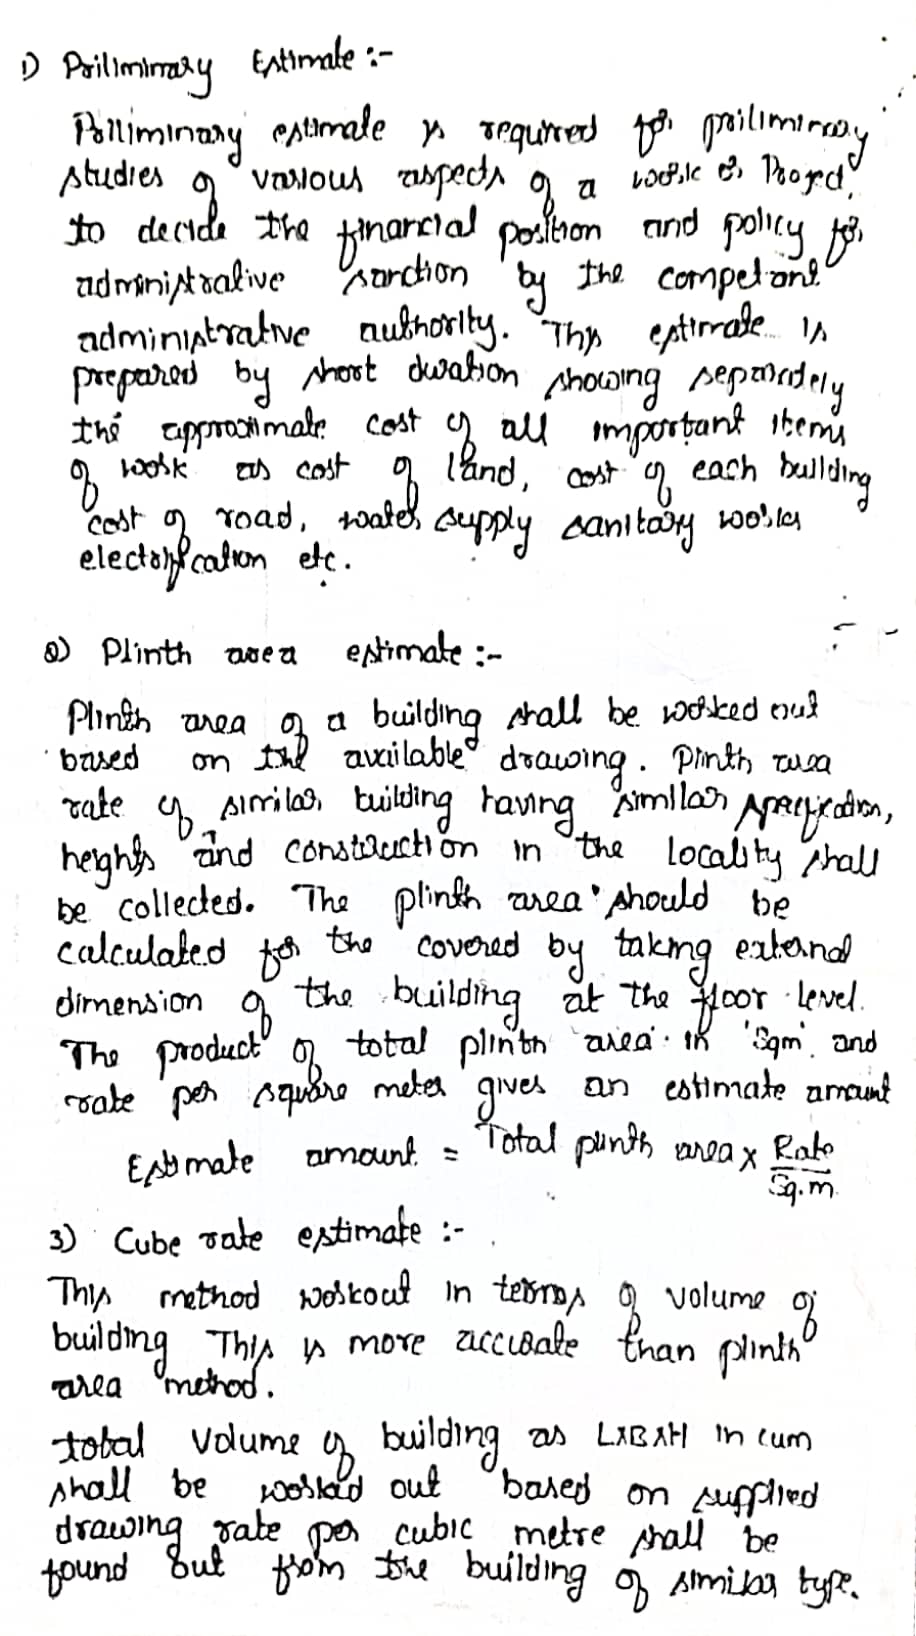 1) Priliminary Estimate :-
Prilliminary estimate is required for priliminary
studies of various aspects of a work or Project,
to decide the financial position and policy for
administrative sanction by the competant
administrative authority. This estimate is
prepared by short duration showing separately
the approximate cost of all important items
of work as cost of land, cost of each building
cost of road, water supply sanitary works
electrification etc.
2) Plinth area estimate :-
Plinth area of a building shall be worked out
based on the available drawing. Plinth area
rate of similar building having similar specification,
heights and construction in the locality shall
be collected. The plinth area should be
calculated for the covered by taking external
dimension of the building at the floor level.
The product of total plinth area in 'Sqm' and
rate per square meter gives an estimate amount
Estimate amount = Total plinth area x Rate/Sq.m
3) Cube rate estimate :-
This method workout in terms of volume of
building This is more accurate than plinth
area method.
total Volume of building as LXBXH in cum
shall be worked out based on supplied
drawing rate per cubic metre shall be
found out from the building of similar type.